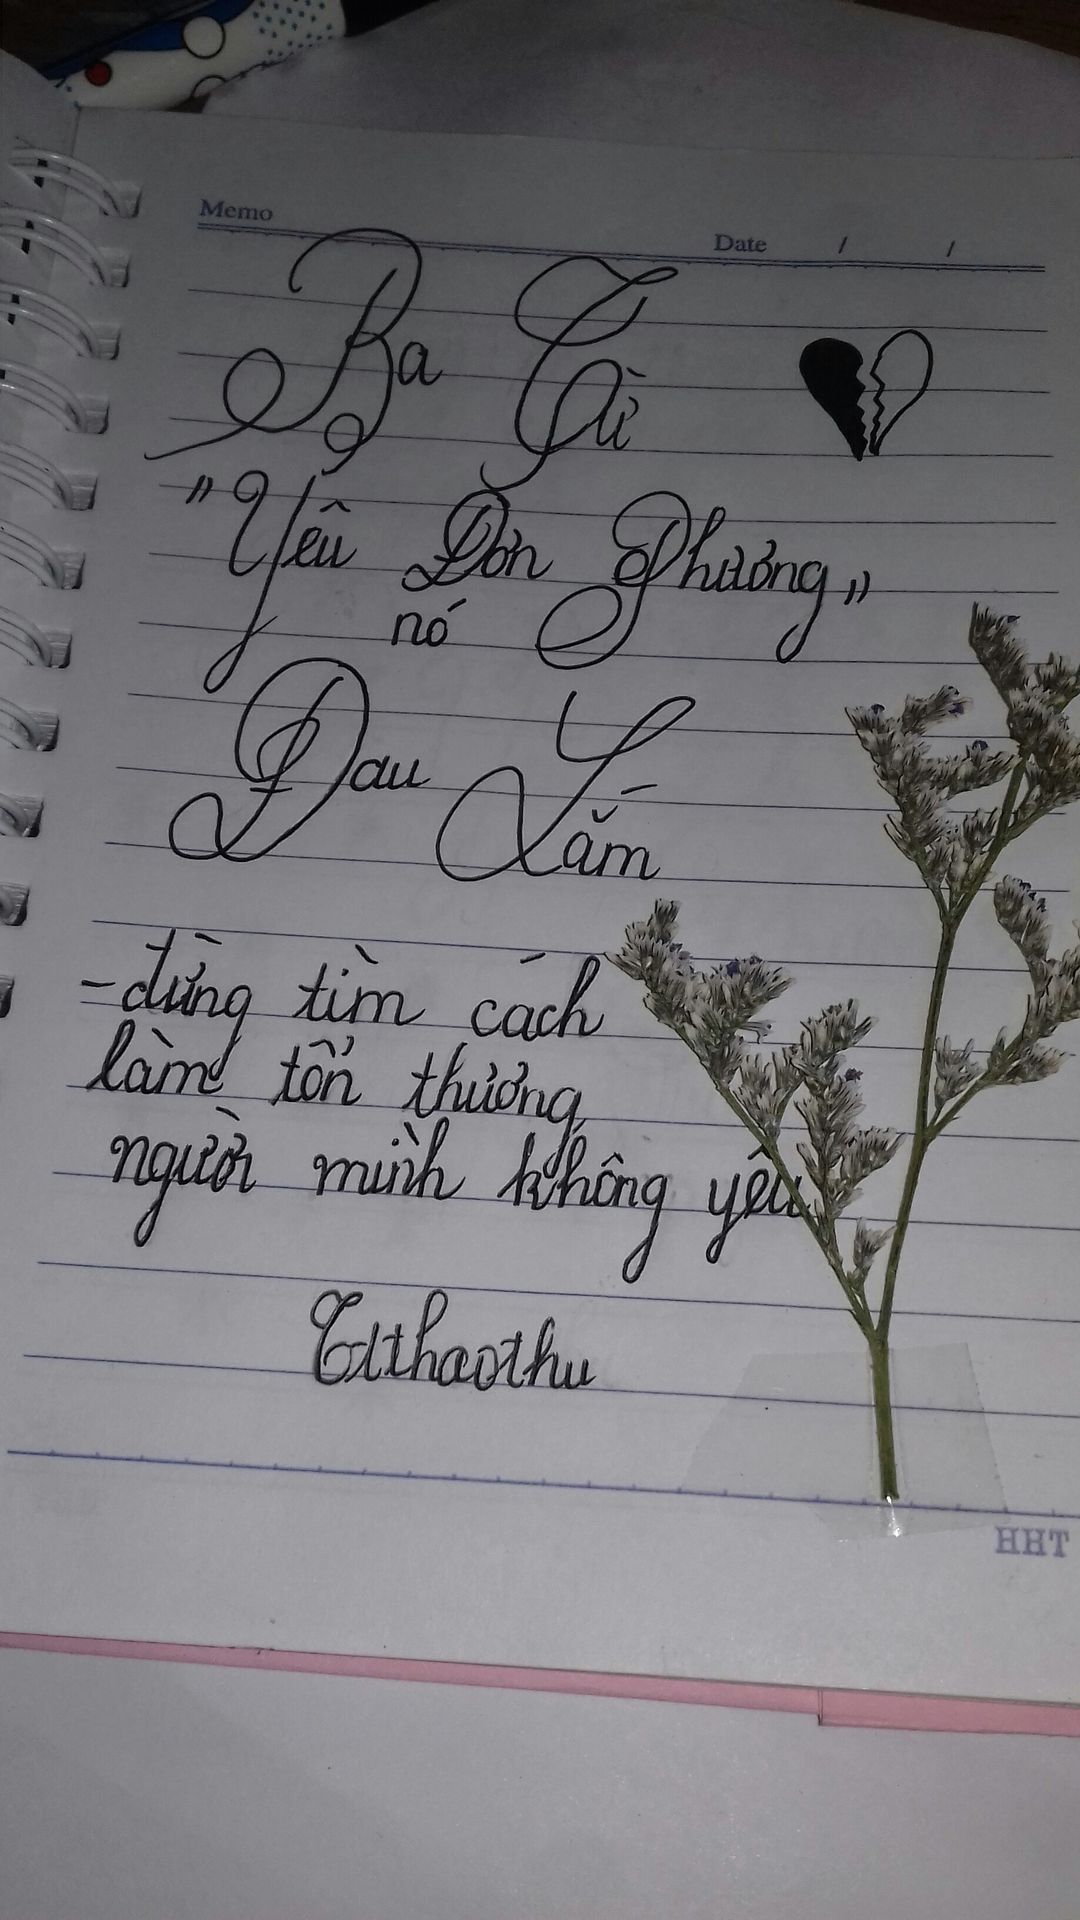 Memo
Date / /
Ba Từ
"Yêu Đơn Phương"
nó
Đau Lắm
-đừng tìm cách
làm tổn thương
người mình không yêu
Ctthaothu
HHT